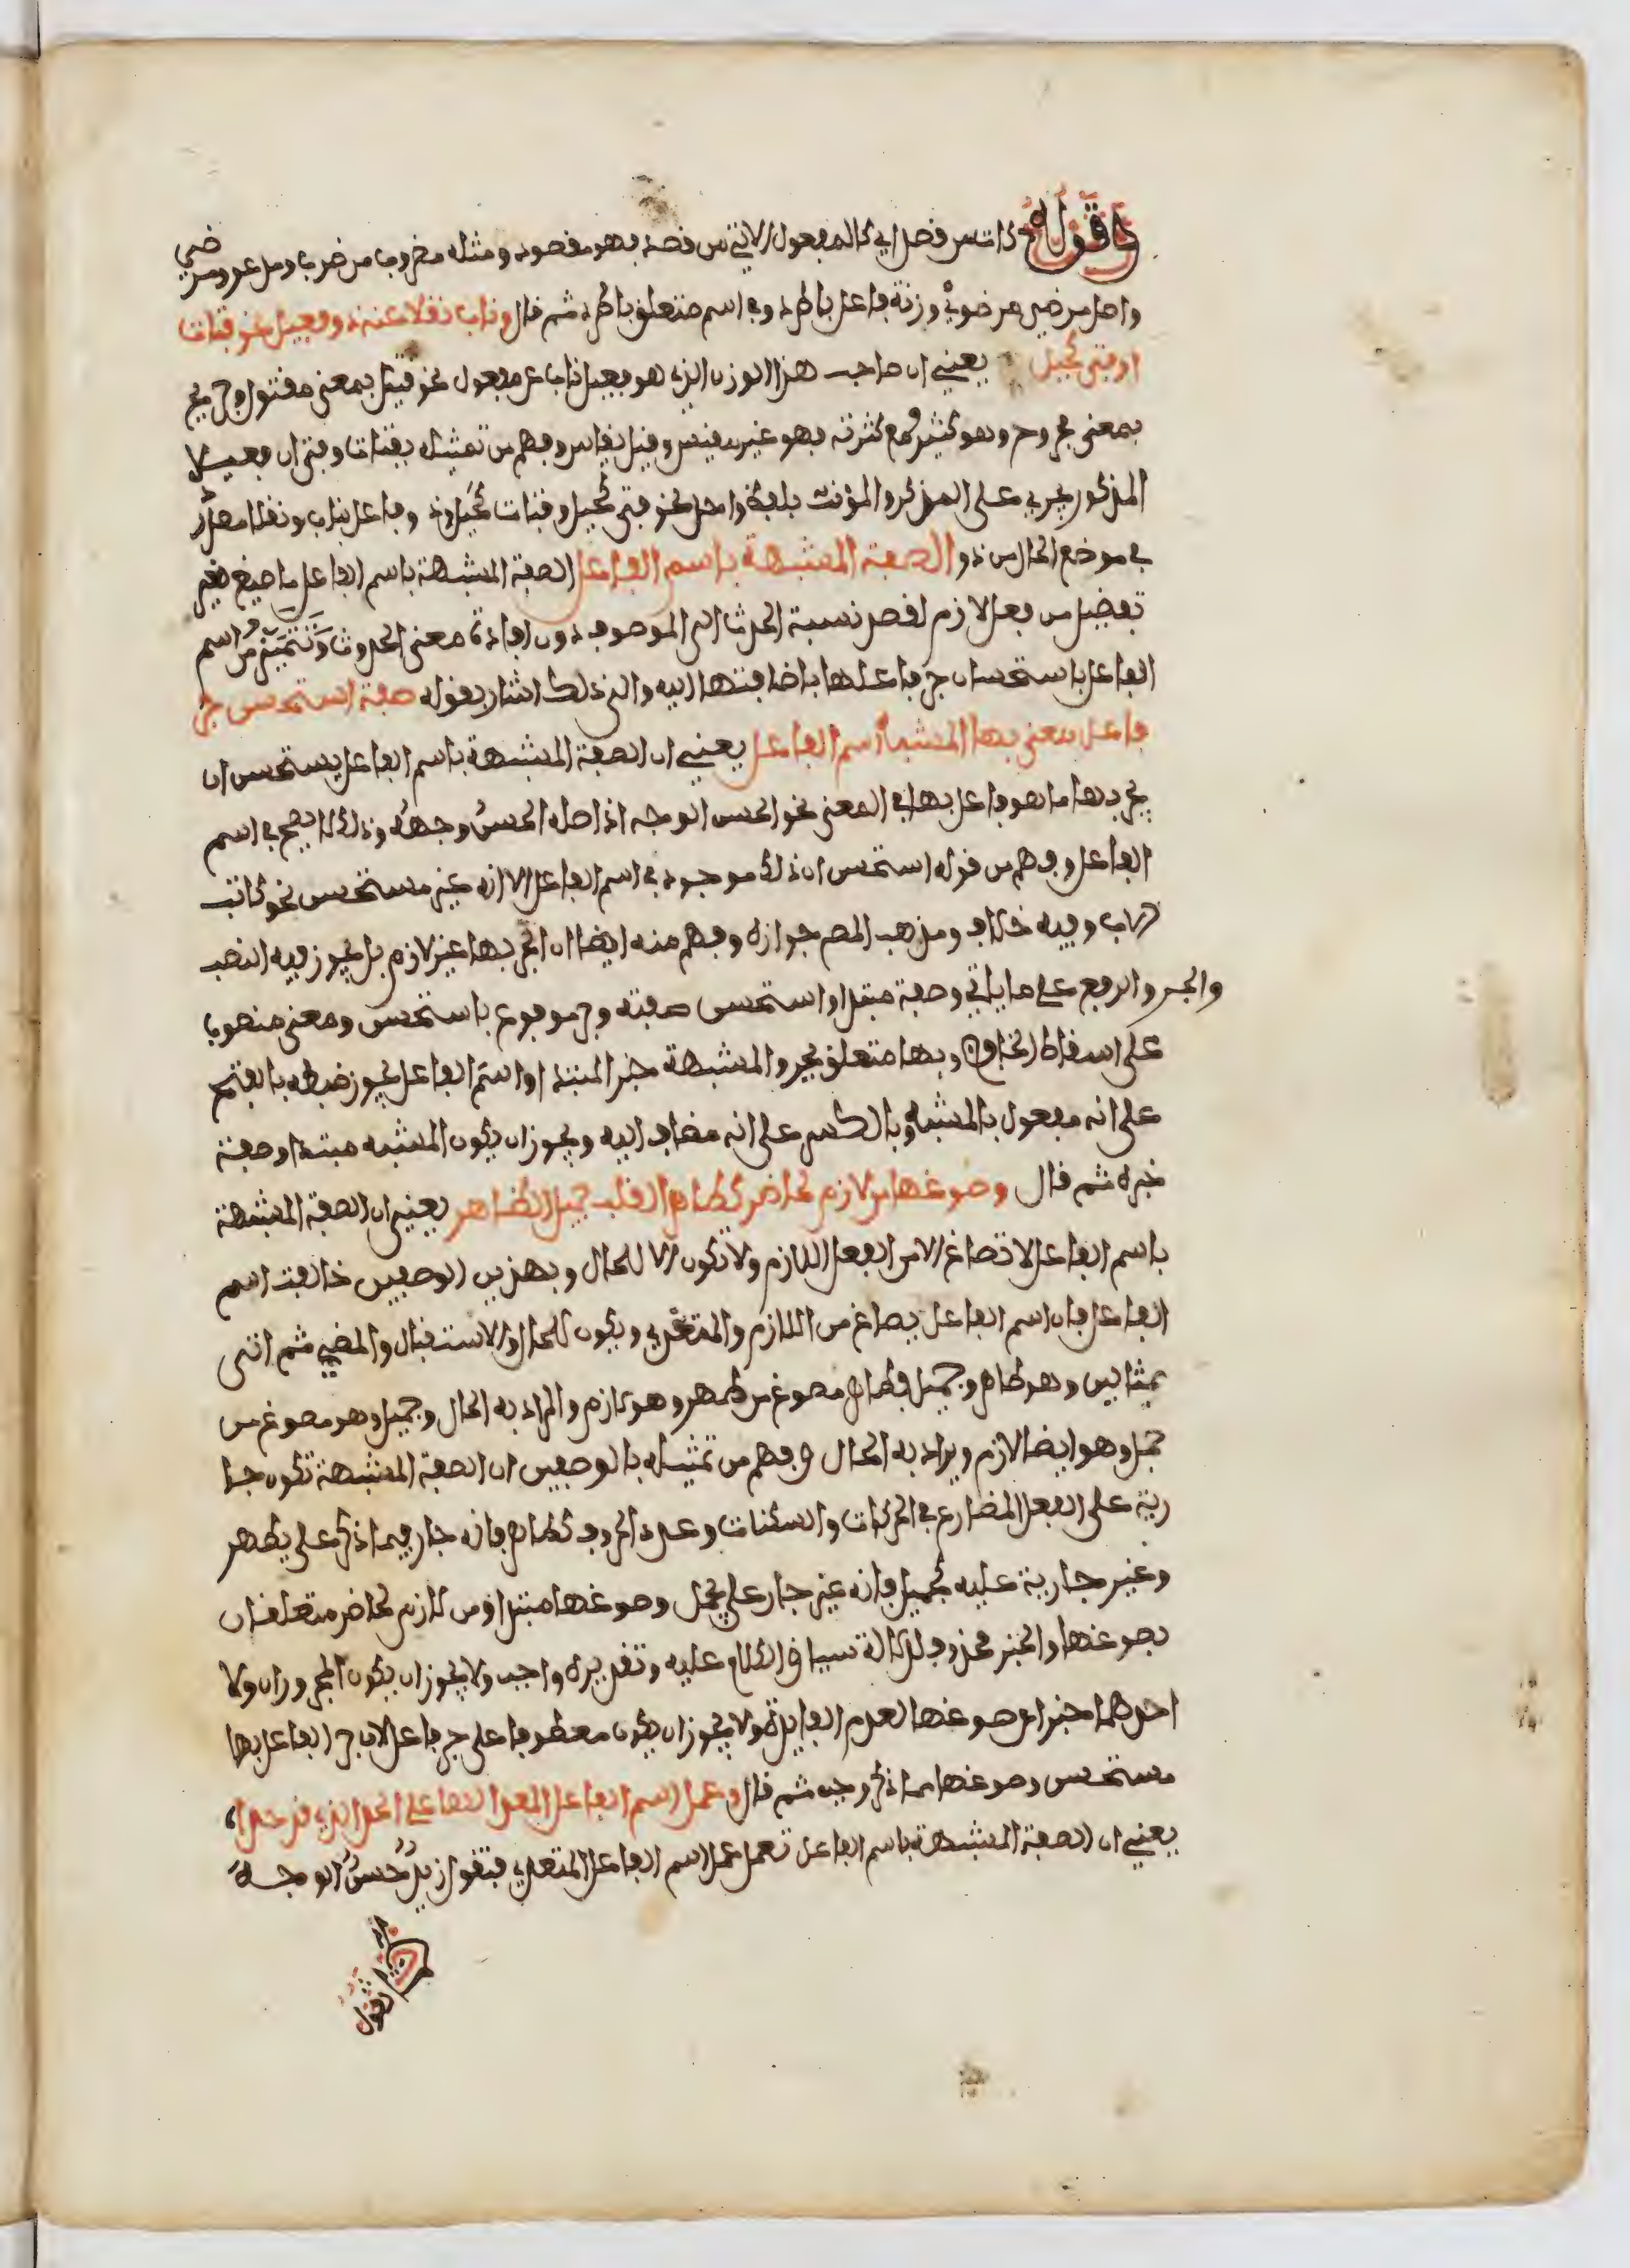 وقوله كات من قصد اي كالمفعول الاتي من قصد فهو مقصود ومثله مضروب من ضرب ومدعو ومرضي
واصل مرضي مرضوي وزنة فاعل باطرد وفي اسم متعلق باطرد ثم قال وناب نقلا عنه ذو فعيل نحو فتات
او فتى كحيل يعني ان صاحب هذا الوزن الذي هو فعيل ناب عن مفعول نحو قتيل بمعنى مقتول وجريح
بمعنى مجروح وهو كثير ومع كثرته فهو غير مقيس وقيل يقاس وفهم من تمثيله بفتات وفتى ان فعيلا
المذكور يجري على المذكر والمؤنث بلفظ واحد نحو فتى كحيل وفتات كحيل وذو فاعل بناب ونقلا مصدر
في موضع الحال من ذو الصفة المشبهة باسم الفاعل الصفة المشبهة باسم الفاعل ما صيغ لغير
تفضيل من فعل لازم لقصد نسبة الحدث الى الموصوف دون افادة معنى الحدوث وتتميز من اسم
الفاعل باستحسان جر فاعلها باضافتها اليه والى ذلك اشار بقوله صفة استحسن جر
فاعل معنى بها المشبهة اسم الفاعل يعني ان الصفة المشبهة باسم الفاعل يستحسن ان
يجر بها ما هو فاعل بها في المعنى نحو الحسن الوجه اذ اصله الحسن وجهه وذلك لا يصح في اسم
الفاعل وفهم من قوله استحسن ان ذلك موجود في اسم الفاعل الا انه غير مستحسن نحو كاتب
الاب وفيه خلاف ومذهب المص جوازه وفهم منه ايضا ان الجر بها غير لازم بل يجوز فيه النصب
والجر والرفع على ما ياتي وصفة مبتدا واستحسن صفته وجر مرفوع باستحسن ومعنى منصوب
على اسقاط الخافض وبها متعلق بجر والمشبهة خبر المبتدا واسم الفاعل يجوز ضبطه بالفتح
على انه مفعول بالمشبهة وبالكسر على انه مضاف اليه ويجوز ان يكون المشبهه مبتدا وصفة
خبره ثم قال وصوغها من لازم لحاضر كطاهر القلب جميل الظاهر يعني ان الصفة المشبهة
باسم الفاعل لا تصاغ الا من الفعل اللازم ولا تكون الا للحال وبهذين الوصفين خالفت اسم
الفاعل فان اسم الفاعل يصاغ من اللازم والمتعدي ويكون للحال والاستقبال والمضي ثم اتى
بمثالين وهو طاهر وجميل فطاهر مصوغ من طهر وهو لازم والمراد به الحال وجميل وهو مصوغ من
جمل وهو ايضا لازم ويراد به الحال وفهم من تمثيله بالوصفين ان الصفة المشبهة تكون جا
رية على الفعل المضارع في الحركات والسكنات وعدد الحروف كطاهر فانه جار فيما ذكر على يطهر
وغير جارية عليه كجميل فانه غير جار على يجمل وصوغها مبتدا ومن لازم لحاضر متعلقان
بصوغها والخبر محذوف للدلالة سياق الكلام عليه وتقديره واجب ولا يجوز ان يكون المجروران ولا
احدهما خبرا عن صوغها لعدم الفايدة ولا يجوز ان يكون معطوفا على جر فاعل لان جر الفاعل بها
مستحسن وصوغها مما ذكر وجب ثم قال وعمل اسم الفاعل المعدى لها على الحد الذي قد حدا
يعني ان الصفة المشبهة باسم الفاعل تعمل عمل اسم الفاعل المتعدي فتقول زيد حسن الوجه